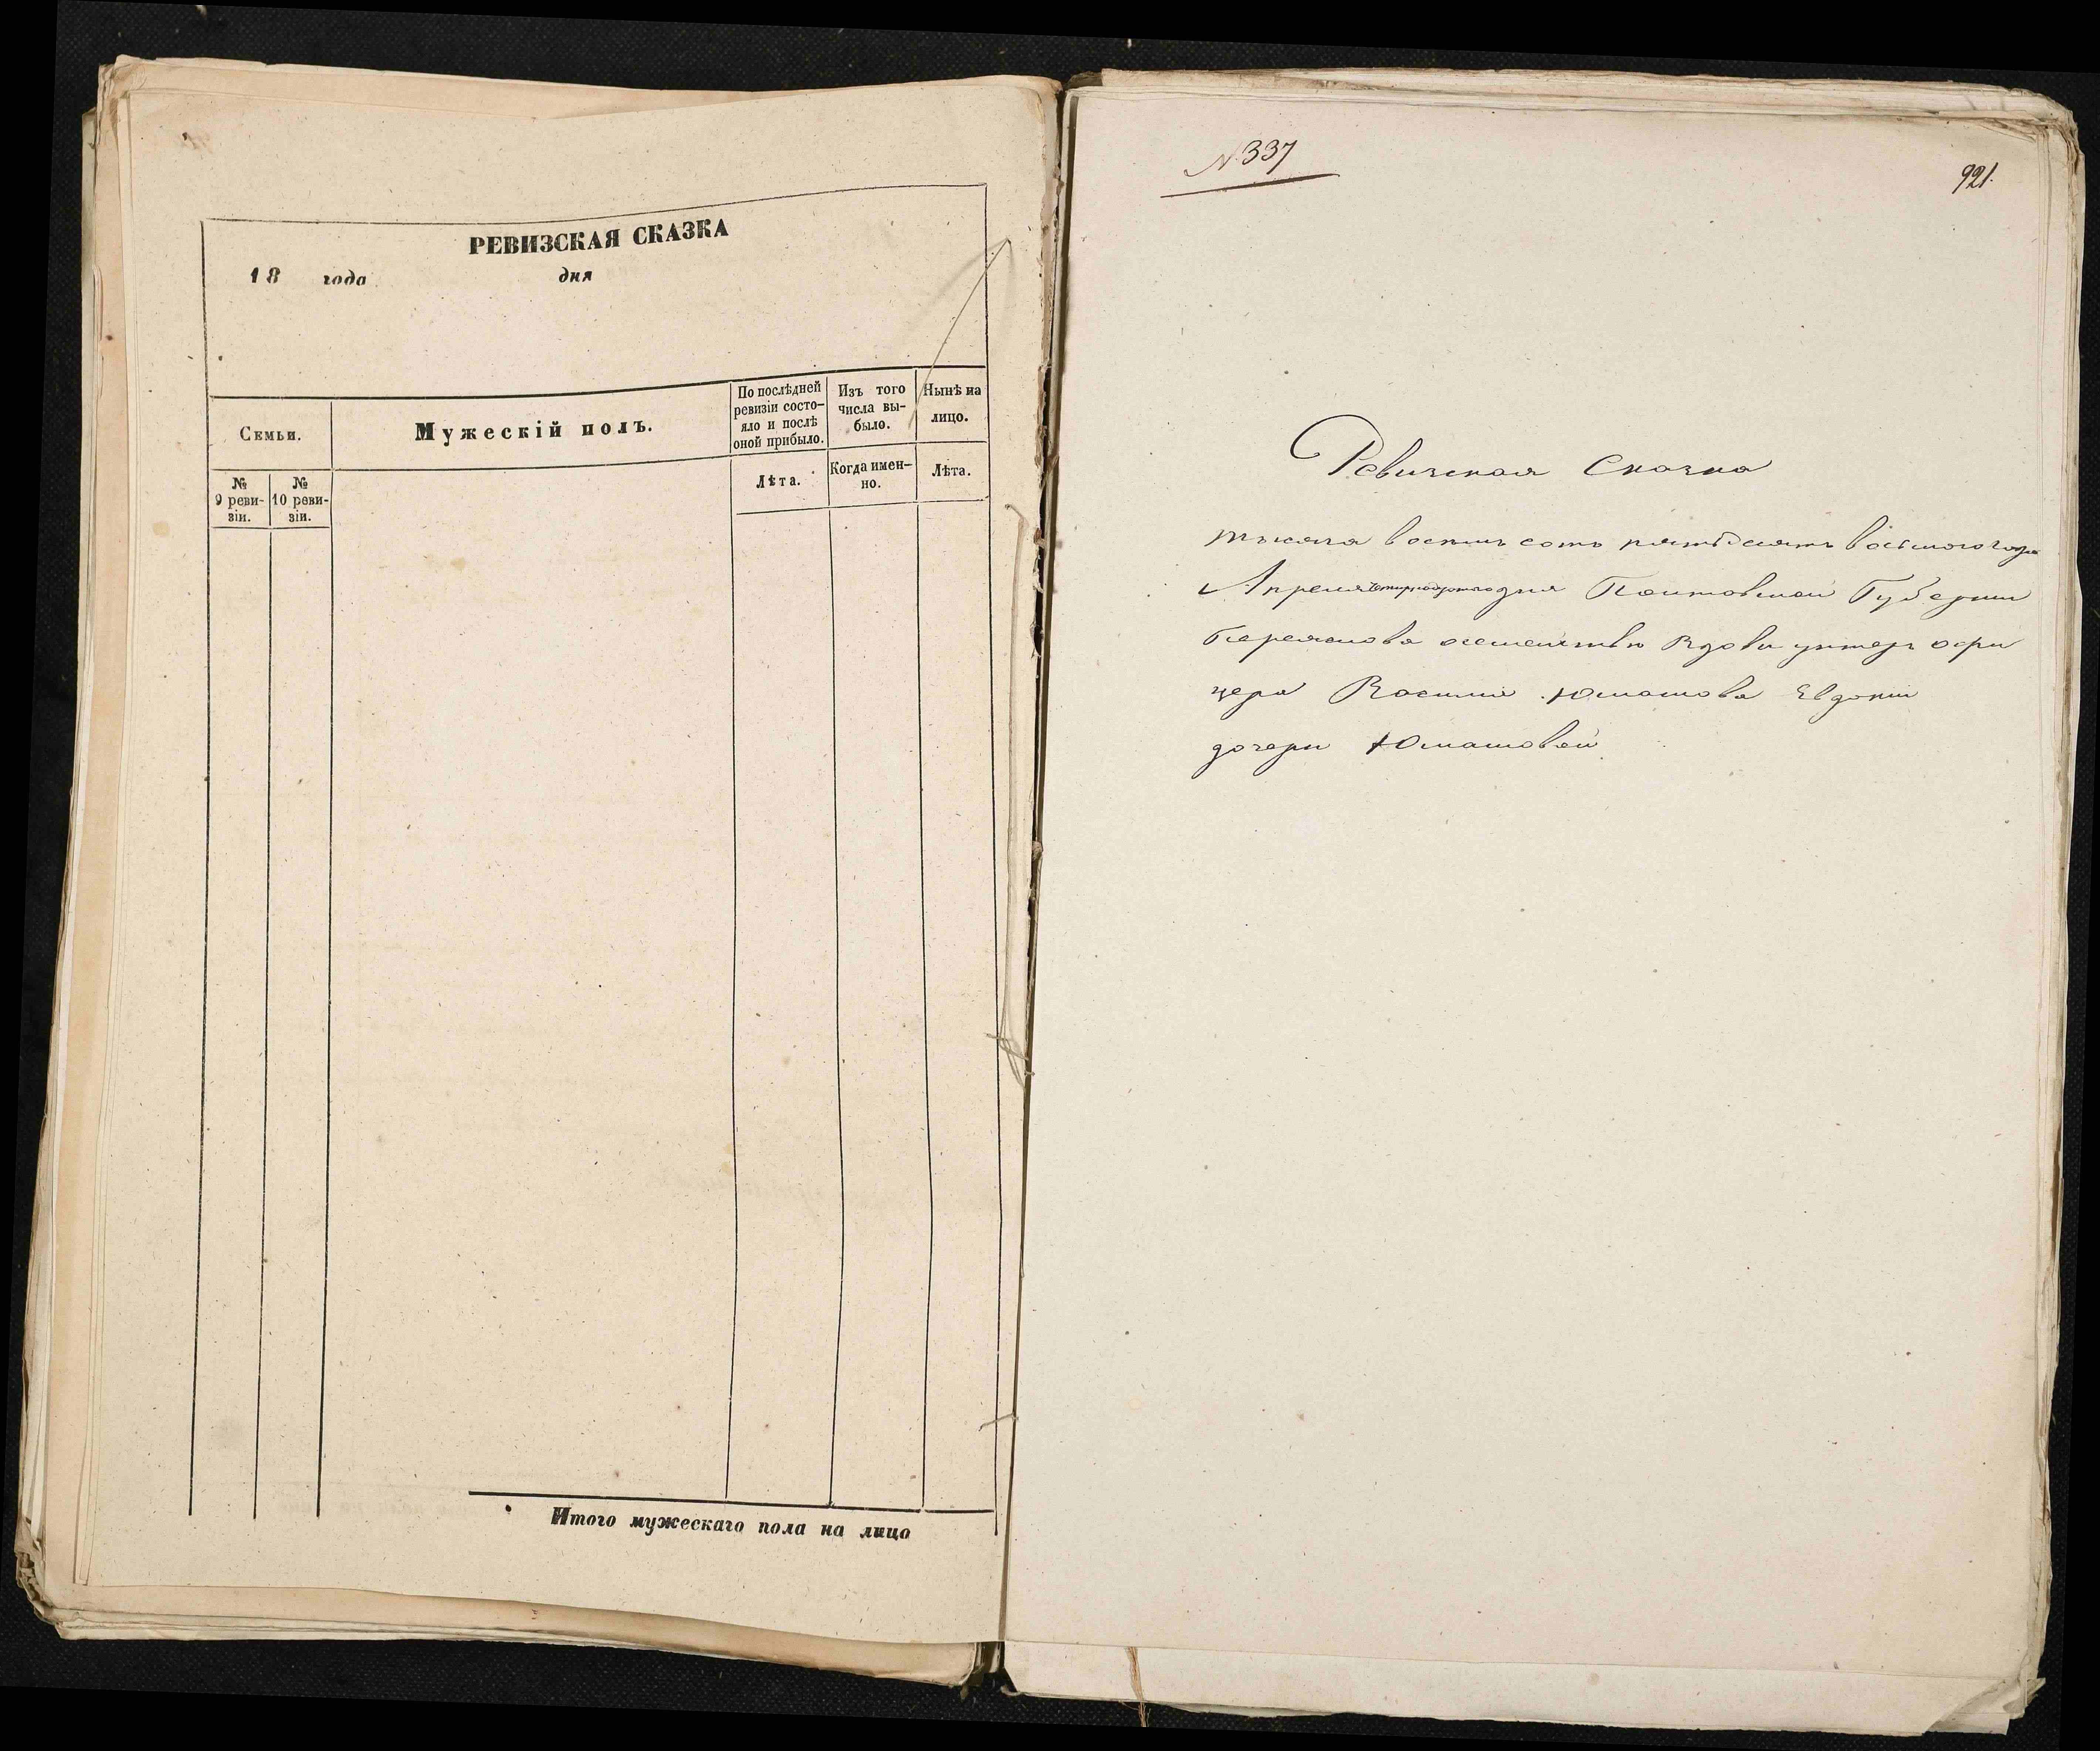 РЕВИЗСКАЯ СКАЗКА
18 года дня
Семьи.
Мужескій полъ.
По послѣдней ревизіи состо-
яло и послѣ
оной прибыло.
Изъ того
числа вы-
было.
Нынѣ на
лицо.
№
9 реви-
зіи.
№
10 реви-
зіи.
Лѣта.
Когда имен-
но.
Лѣта.
Итого мужескаго пола на лицо
№ 337
921.
Ревизская Сказка
тысяча восемь сотъ пятьдесятъ восьмого года
Апреля дня Полтовской Губерніи
вдови унтеръ офи
цера Василія Юмашова Евдокіи
дочери Юмашовой